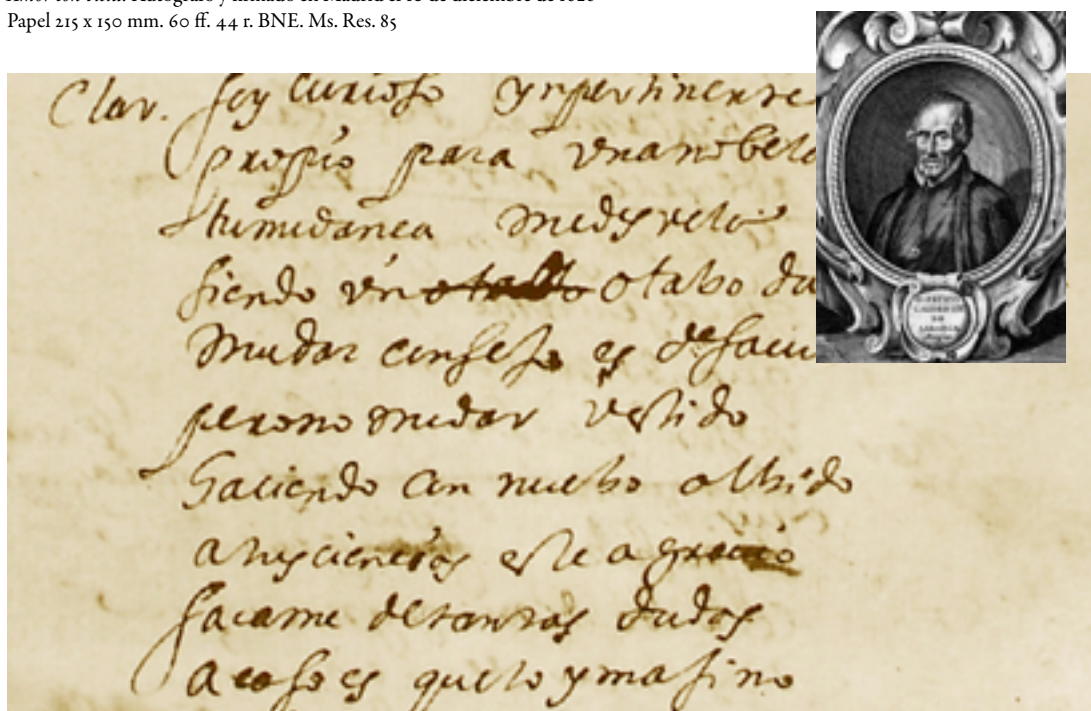 Papel 215 x 150 mm. 60 ff. 44 r. BNE. Ms. Res. 85
Clar. soy curioso ynpertinente
propio para una nobela
tu mudança me desvela
siendo un otabo du
mudar consejo es de saui
pero no mudar vestido
haciendo con nuebo olbido
a tus ciencias este agrauio
sacame de tantas dudas
acaso es que lo ymagino